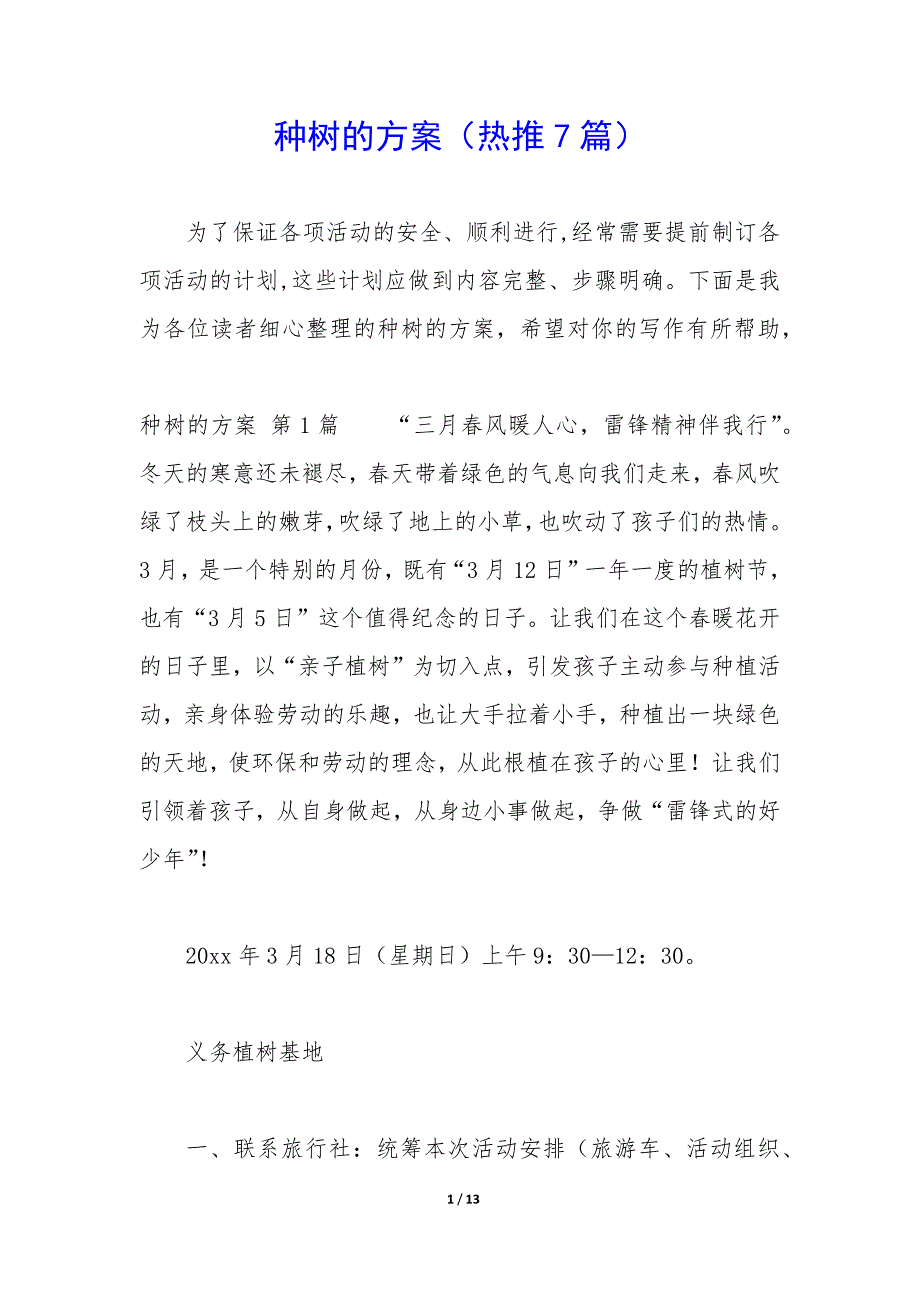 种树的方案（热推7篇）
为了保证各项活动的安全、顺利进行,经常需要提前制订各
项活动的计划,这些计划应做到内容完整、步骤明确。下面是我
为各位读者细心整理的种树的方案，希望对你的写作有所帮助，
种树的方案 第1篇　　“三月春风暖人心，雷锋精神伴我行”。
冬天的寒意还未褪尽，春天带着绿色的气息向我们走来，春风吹
绿了枝头上的嫩芽，吹绿了地上的小草，也吹动了孩子们的热情。
3月，是一个特别的月份，既有“3月12日”一年一度的植树节，
也有“3月5日”这个值得纪念的日子。让我们在这个春暖花开
的日子里，以“亲子植树”为切入点，引发孩子主动参与种植活
动，亲身体验劳动的乐趣，也让大手拉着小手，种植出一块绿色
的天地，使环保和劳动的理念，从此根植在孩子的心里！让我们
引领着孩子，从自身做起，从身边小事做起，争做“雷锋式的好
少年”！
20xx年3月18日（星期日）上午9：30—12：30。
义务植树基地
一、联系旅行社：统筹本次活动安排（旅游车、活动组织、
1 / 13